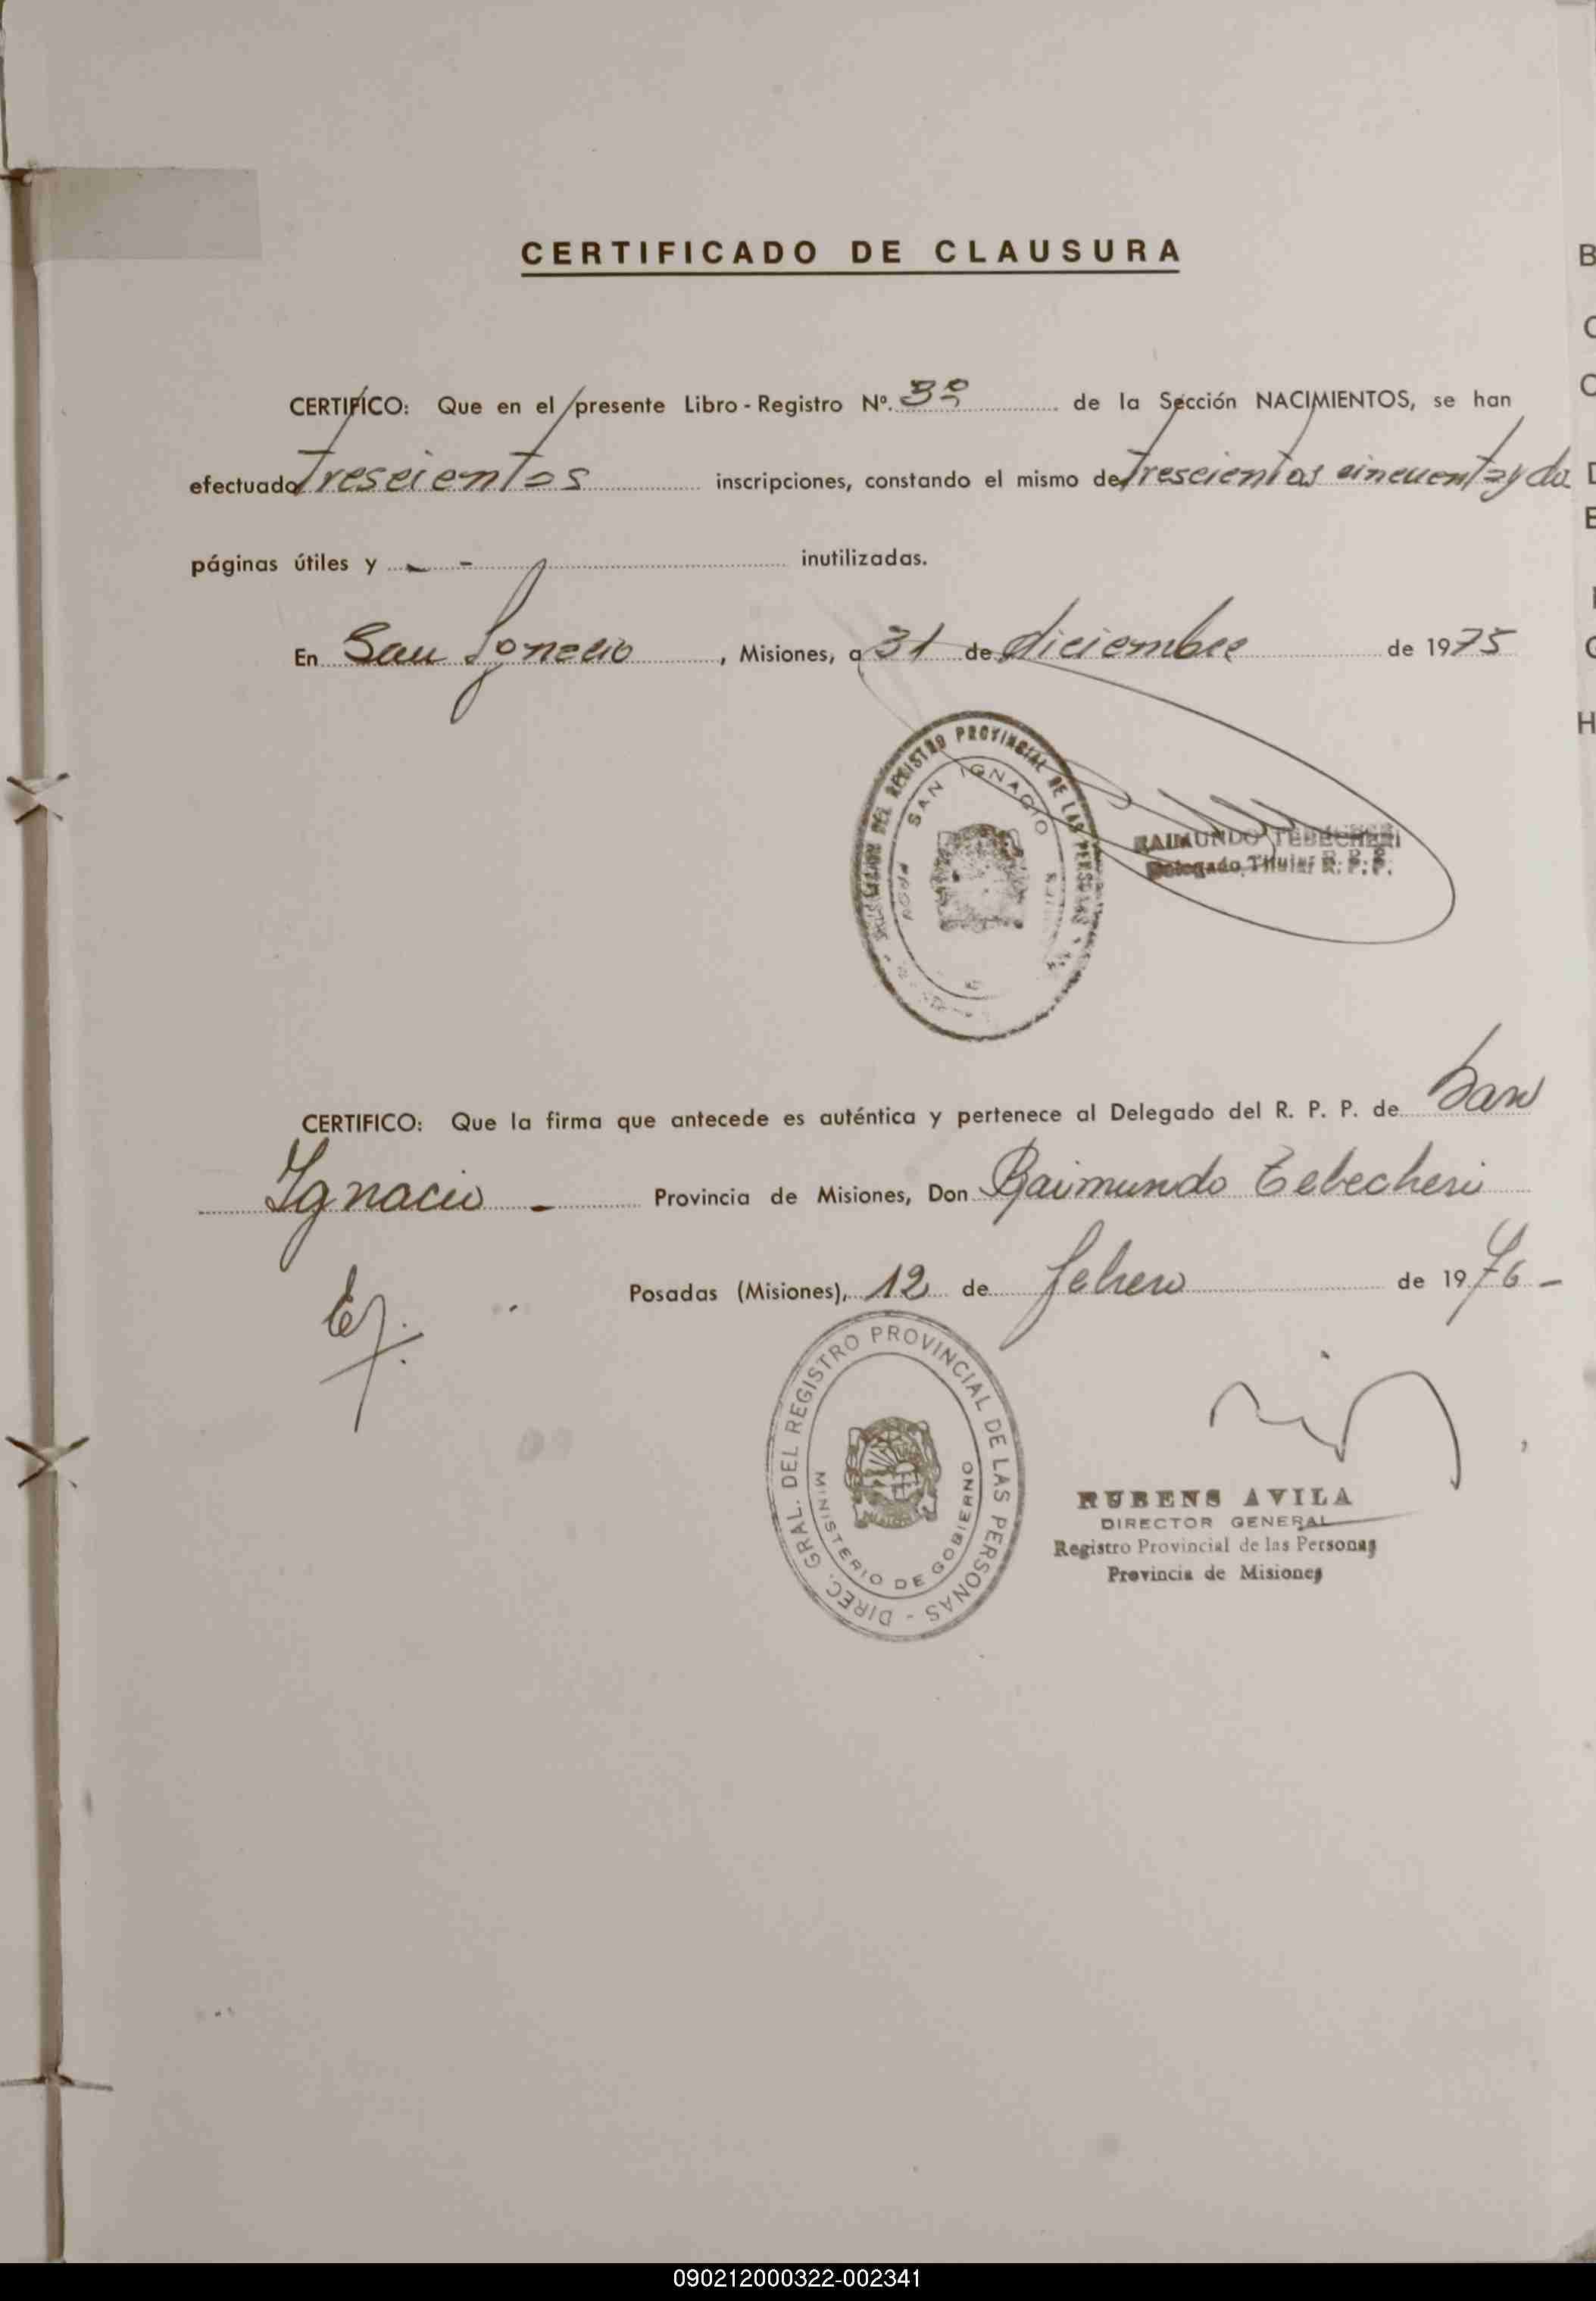 CERTIFICADO DE CLAUSURA
CERTIFICO: Que en el presente Libro - Registro Nº. 3º de la Sección NACIMIENTOS, se han
efectuado Trescientos inscripciones, constando el mismo de Trescientos cincuenta y dos
páginas útiles y - - inutilizadas.
En San Ignacio, Misiones, a 31 de diciembre de 1975
DEL REGISTRO PROVINCIAL DE LAS PERSONAS
SAN IGNACIO
RAIMUNDO TEBECHERI
Delegado Titular R. P. P.
CERTIFICO: Que la firma que antecede es auténtica y pertenece al Delegado del R. P. P. de San
Ignacio - Provincia de Misiones, Don Raimundo Tebecheri
Posadas (Misiones), 12 de febrero de 1976 -
DIREC. GRAL. DEL REGISTRO PROVINCIAL DE LAS PERSONAS -
MINISTERIO DE GOBIERNO
RUBENS AVILA
DIRECTOR GENERAL
Registro Provincial de las Personas
Provincia de Misiones
090212000322-002341